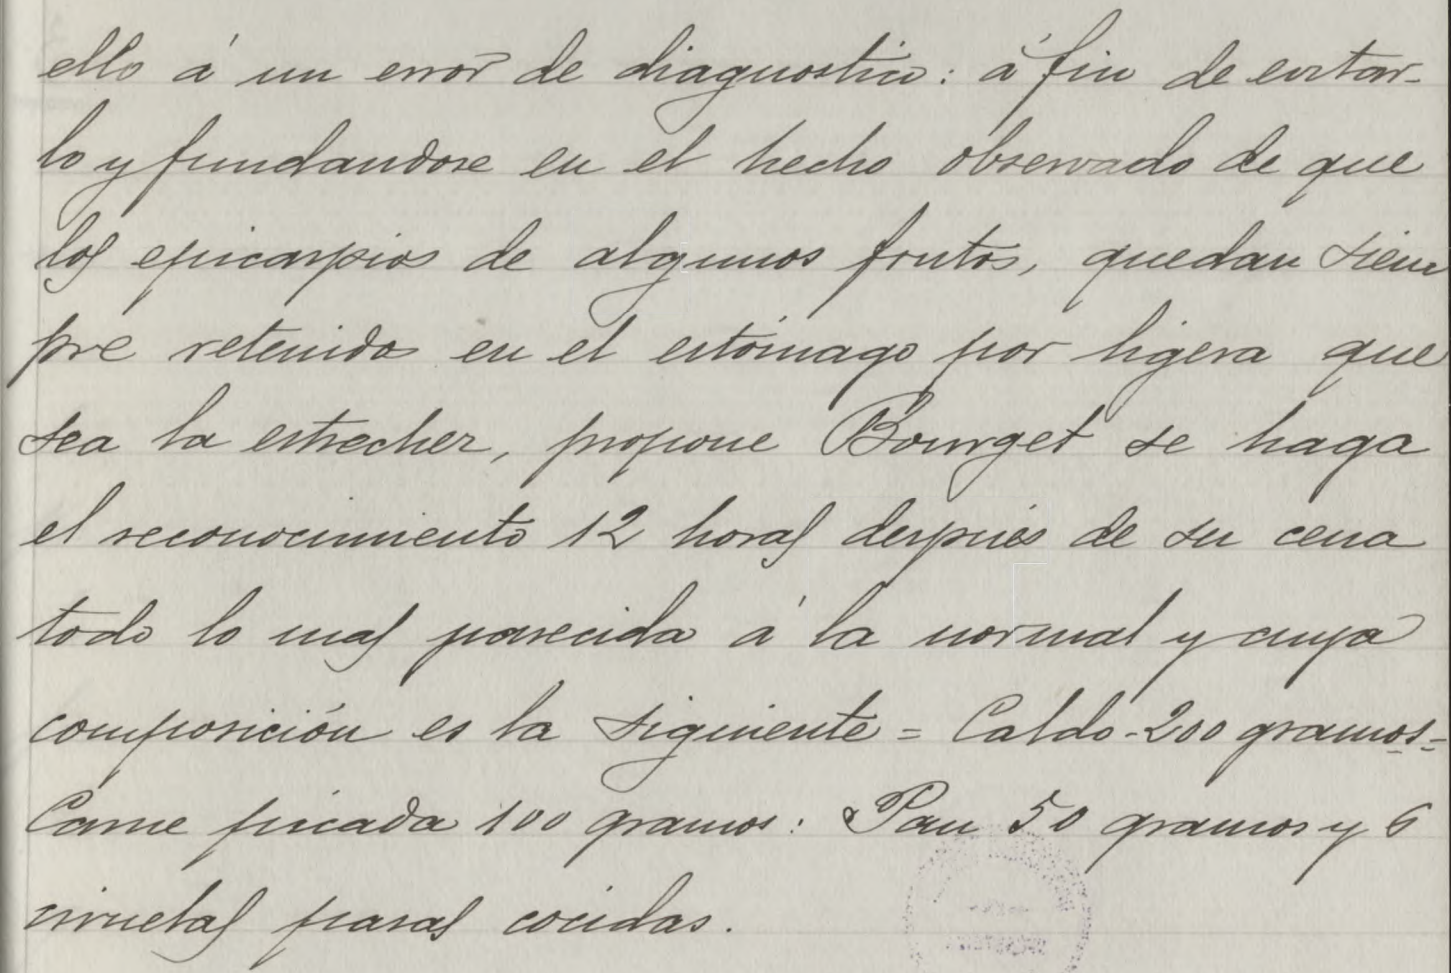 ello á un error de diagnostico: á fin de evitar-
lo y fundandose en el hecho observado de que
los epicarpios de algunos frutos, quedan siem
pre retenidos en el estómago por ligera que
sea la estrechez, propone Bourget se haga
el reconocimiento 12 horas despues de su cena
todo lo mas parecida á la normal y cuya
composición es la siguiente = Caldo - 200 gramos =
Carne picada 100 gramos: Pan 50 gramos y 6
ciruelas pasas cocidas.